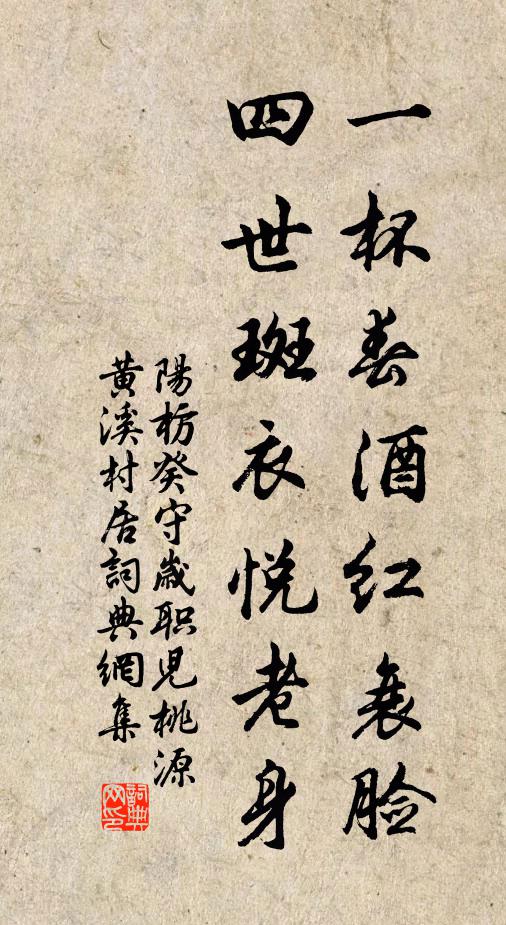 一杯春酒红衰脸
四世斑衣悦老身
陽枋癸守歲职児桃源
黃溪村居詞典網集
詞典網印